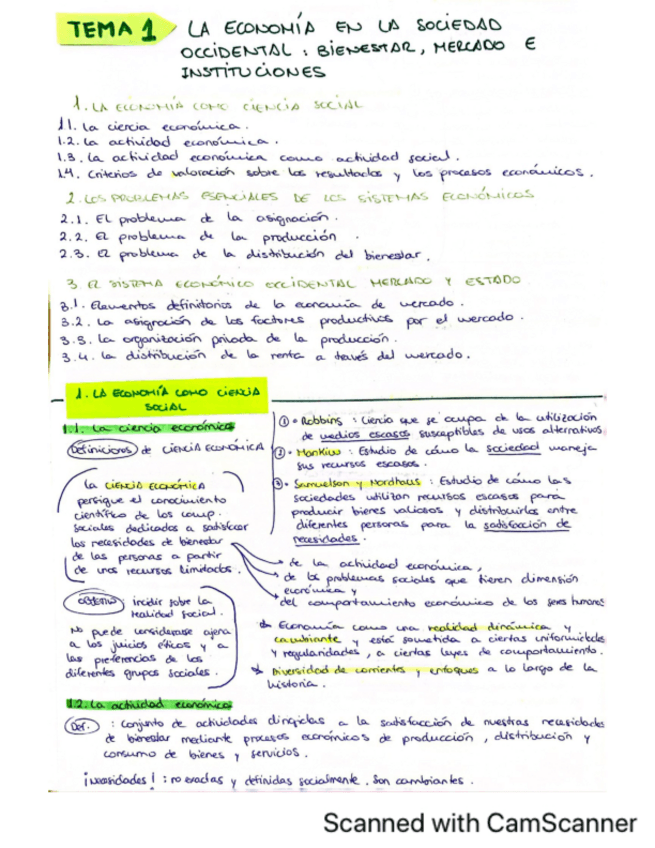 TEMA 1
LA ECONOMÍA EN LA SOCIEDAD
OCCIDENTAL : BIENESTAR, MERCADO E
INSTITUCIONES
1. LA ECONOMÍA COMO CIENCIA SOCIAL
1.1. La ciencia económica.
1.2. La actividad económica.
1.3. La actividad económica como actividad social.
1.4. Criterios de valoración sobre los resultados y los procesos económicos.
2. LOS PROBLEMAS ESENCIALES DE LOS SISTEMAS ECONÓMICOS
2.1. El problema de la asignación.
2.2. El problema de la producción
2.3. El problema de la distribución del bienestar.
3. EL SISTEMA ECONÓMICO OCCIDENTAL MERCADO Y ESTADO
3.1. Elementos definitorios de la economía de mercado.
3.2. La asignación de los factores productivos por el mercado.
3.3. La organización privada de la producción.
3.4. La distribución de la renta a través del mercado.
1. LA ECONOMÍA COMO CIENCIA
SOCIAL
1.1. La ciencia económica
Definiciones de CIENCIA ECONÓMICA
① • Robbins : Ciencia que se ocupa de la utilización
de medios escasos susceptibles de usos alternativos
② • Mankiw : Estudio de cómo la sociedad maneja
sus recursos escasos.
③ • Samuelson y Nordhaus : Estudio de cómo las
sociedades utilizan recursos escasos para
producir bienes valiosos y distribuirlos entre
diferentes personas para la satisfacción de
necesidades.
La CIENCIA ECONÓMICA
persigue el conocimiento
científico de los comp.
sociales dedicados a satisfacer
las necesidades de bienestar
de las personas a partir
de unos recursos limitados.
de la actividad económica,
de los problemas sociales que tienen dimensión
económica y
del comportamiento económico de los seres humanos
objetivo incidir sobre la
realidad social.
No puede considerarse ajena
a los juicios éticos y a
las preferencias de los
diferentes grupos sociales.
Economía como una realidad dinámica y
cambiante y está sometida a ciertas uniformidades
y regularidades, a ciertas leyes de comportamiento.
Diversidad de corrientes y enfoques a lo largo de la
historia.
1.2. La actividad económica
Def. : conjunto de actividades dirigidas a la satisfacción de nuestras necesidades
de bienestar mediante procesos económicos de producción, distribución y
consumo de bienes y servicios.
¡necesidades! : no exactas y definidas socialmente. Son cambiantes.
Scanned with CamScanner